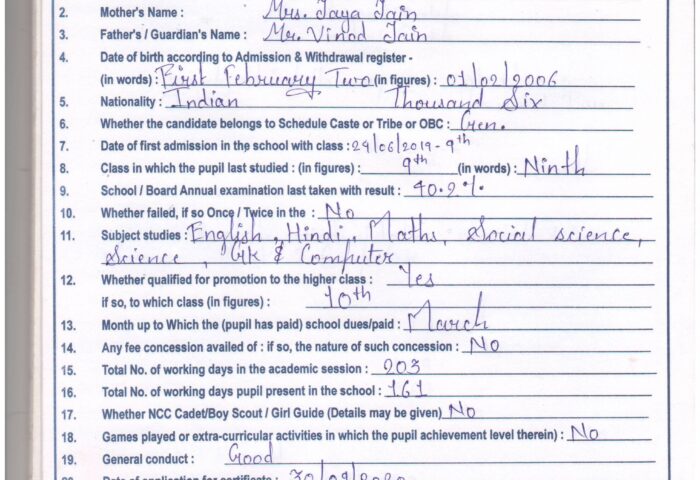 2. Mother's Name : Mrs. Jaya Jain
3. Father's / Guardian's Name : Mr. Vinod Jain
4. Date of birth according to Admission & Withdrawal register -
(in words) : First February Two (in figures) : 01/02/2006
5. Nationality : Indian Thousand Six
6. Whether the candidate belongs to Schedule Caste or Tribe or OBC : Gen.
7. Date of first admission in the school with class : 24/06/2019 - 9th
8. Class in which the pupil last studied : (in figures) : 9th (in words) : Ninth
9. School / Board Annual examination last taken with result : 40.2%.
10. Whether failed, if so Once / Twice in the : No
11. Subject studies : English, Hindi, Maths, Social science,
Science, GK & Computer
12. Whether qualified for promotion to the higher class : Yes
if so, to which class (in figures) : 10th
13. Month up to Which the (pupil has paid) school dues/paid : March
14. Any fee concession availed of : if so, the nature of such concession : No
15. Total No. of working days in the academic session : 203
16. Total No. of working days pupil present in the school : 161
17. Whether NCC Cadet/Boy Scout / Girl Guide (Details may be given) No
18. Games played or extra-curricular activities in which the pupil achievement level therein) : No
19. General conduct : Good
20. Date of application for certificate : 30/09/2020